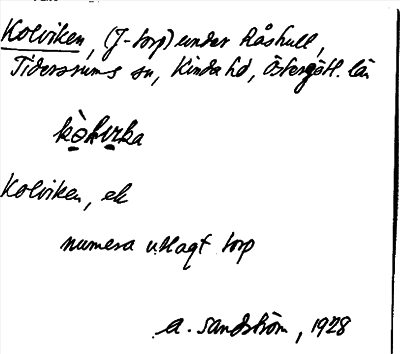 Kolviken, (J-torp) under Råshult,
Tidersrums sn, Kinda hd, Östergötl. län
Kolviken, ek
numera utlagt torp
A. Sandström, 1928